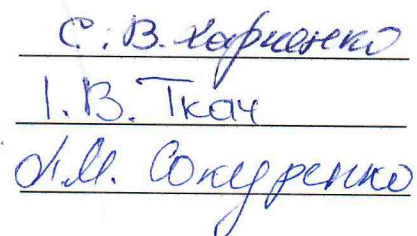 С. В. Харченко
І. В. Ткач
Л.М. Сокуренко